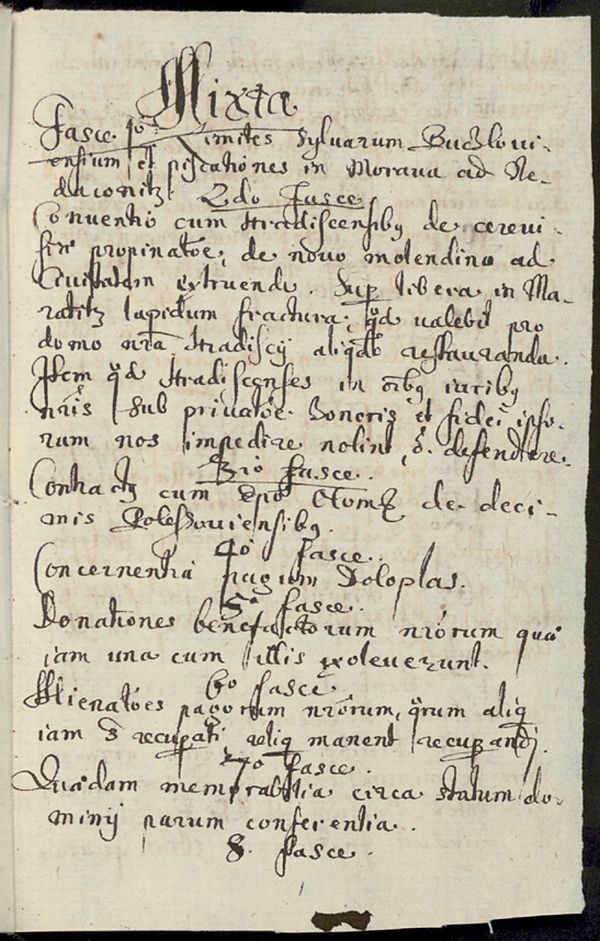 Mixta
Fasce. 1o. Limites Sylvarum Buchlovi-
ensium et piscationes in Morava ad Ne-
daconitz. 2do Fasce.
Conventio cum Hradiscensibq de cerevi-
siae propinatõe, de novo molendino ad
Civitatem extruendo. Sup libera in Ma-
ratitz lapidum fractura, qd valebit pro
domo nrã Hradiscij aliqdo restauranda.
Item qd Hradiscenses in oibq juribq
nris sub privatõe honoris et fidei ipso-
rum nos impedire nolint, defendere.
3tio Fasce.
Contractq cum Dno de deci-
mis Poleßoviensibq.
4o Fasce.
Concernentia pagum Doloplas.
5o Fasce.
Donationes benefactorum nrorum quae
iam una cum illis exoleverunt.
6o Fasce.
Alienatões pagorum nrorum, qrum aliq
iam st recuperati reliq manent recuperandj.
7o Fasce.
Quaedam memorabilia circa statum do-
minij parum conferentia.
8. Fasce.